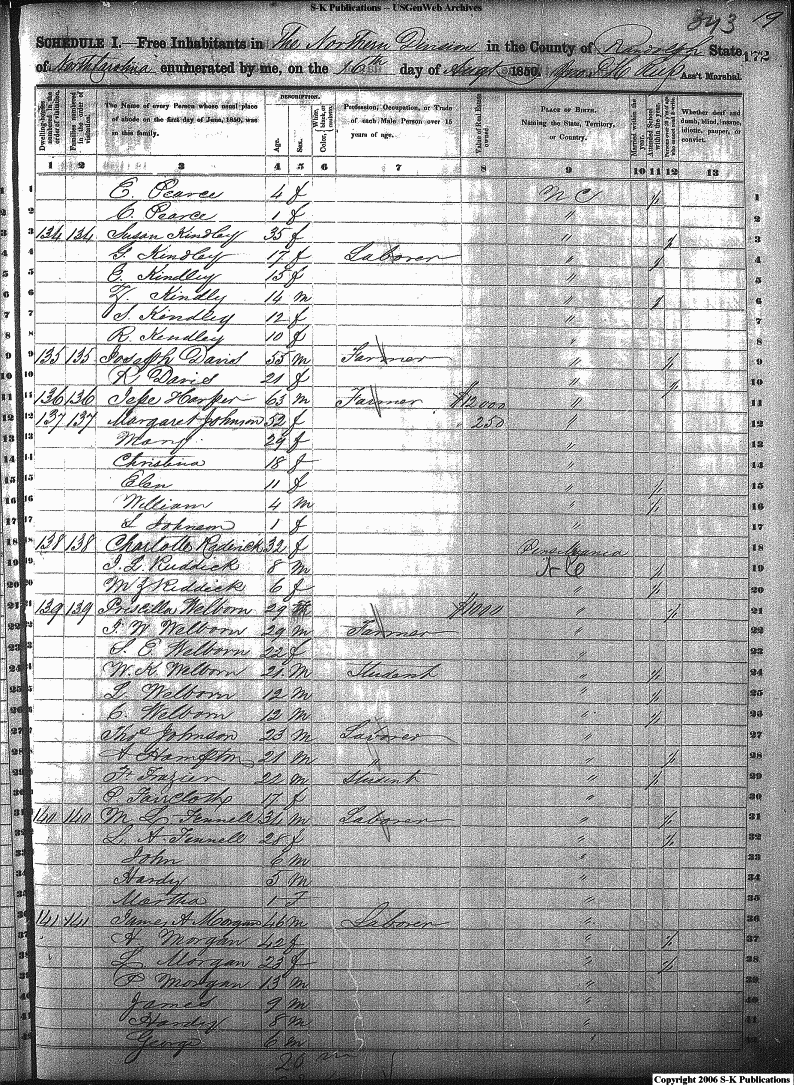 S-K Publications – USGenWeb Archives
343 19
SCHEDULE I.—Free Inhabitants in The Northern Division in the County of Randolph State
172
of North Carolina enumerated by me, on the 16th day of Augt 1850. Ass't Marshal.
Dwelling-houses numbered in the order of visitation.
Families numbered in the order of visitation.
The Name of every Person whose usual place of abode on the first day of June, 1850, was in this family.
DESCRIPTION.
Age.
Sex.
Color, White, black, or mulatto.
Profession, Occupation, or Trade of each Male Person over 15 years of age.
Value of Real Estate owned.
PLACE OF BIRTH. Naming the State, Territory, or Country.
Married within the year.
Attended School within the year.
Persons over 20 y'rs of age who cannot read & write.
Whether deaf and dumb, blind, insane, idiotic, pauper, or convict.
1 2 3 4 5 6 7 8 9 10 11 12 13
1 E Pearce 4 f N C / 1
2 C. Pearce 1 f " 2
3 134 134 Susan Kindley 35 f " / 3
4 G. Kindley 17 f Laborer " / 4
5 E Kindley 15 f " 5
6 Z. Kindly 14 m " / 6
7 S. Kindley 12 f " 7
8 R. Kindley 10 f " 8
9 135 135 Joseph David 55 m Farmer " / 9
10 R David 21 f " / 10
11 136 136 Jese Harper 63 m Farmer $12000 " 11
12 137 137 Margaret Johnson 52 f 250 " 12
13 Mary 29 f " 13
14 Christina 18 f " 14
15 Elen 11 f " / 15
16 William 4 m " / 16
17 L Johnson 1 f " 17
18 138 138 Charlotte Rederick 32 f Pensilvania 18
19 J. L. Ruddick 8 m N C / 19
20 M Z Riddick 6 f " / 20
21 139 139 Priscilla Welborn 29 $1000 " / 21
22 J. W Welborn 29 m Farmer " 22
23 S. E. Welborn 22 f " 23
24 W. K. Welborn 21 M Student " / 24
25 L Welborn 12 m " / 25
26 C. Welborn 12 m " / 26
27 Thos Johnson 23 m Laborer " 27
28 A Hampton 21 m " " / 28
29 F. Frazier 22 m Student " / 29
30 P. Faircloth 17 f " 30
31 140 140 M L Fennell 31 m Laborer " / 31
32 L. A Finnell 28 f " / 32
33 John 6 m " 33
34 Hardy 5 m " 34
35 Martha 1 F " 35
36 141 141 James A Morgan 46 m Laborer " 36
37 A Morgan 42 f " / 37
38 L Morgan 23 f " / 38
39 P Morgan 13 m " 39
40 James 9 m " 40
41 Hardy 8 m " 41
42 George 6 m " 42
20 m
Copyright 2006 S-K Publications